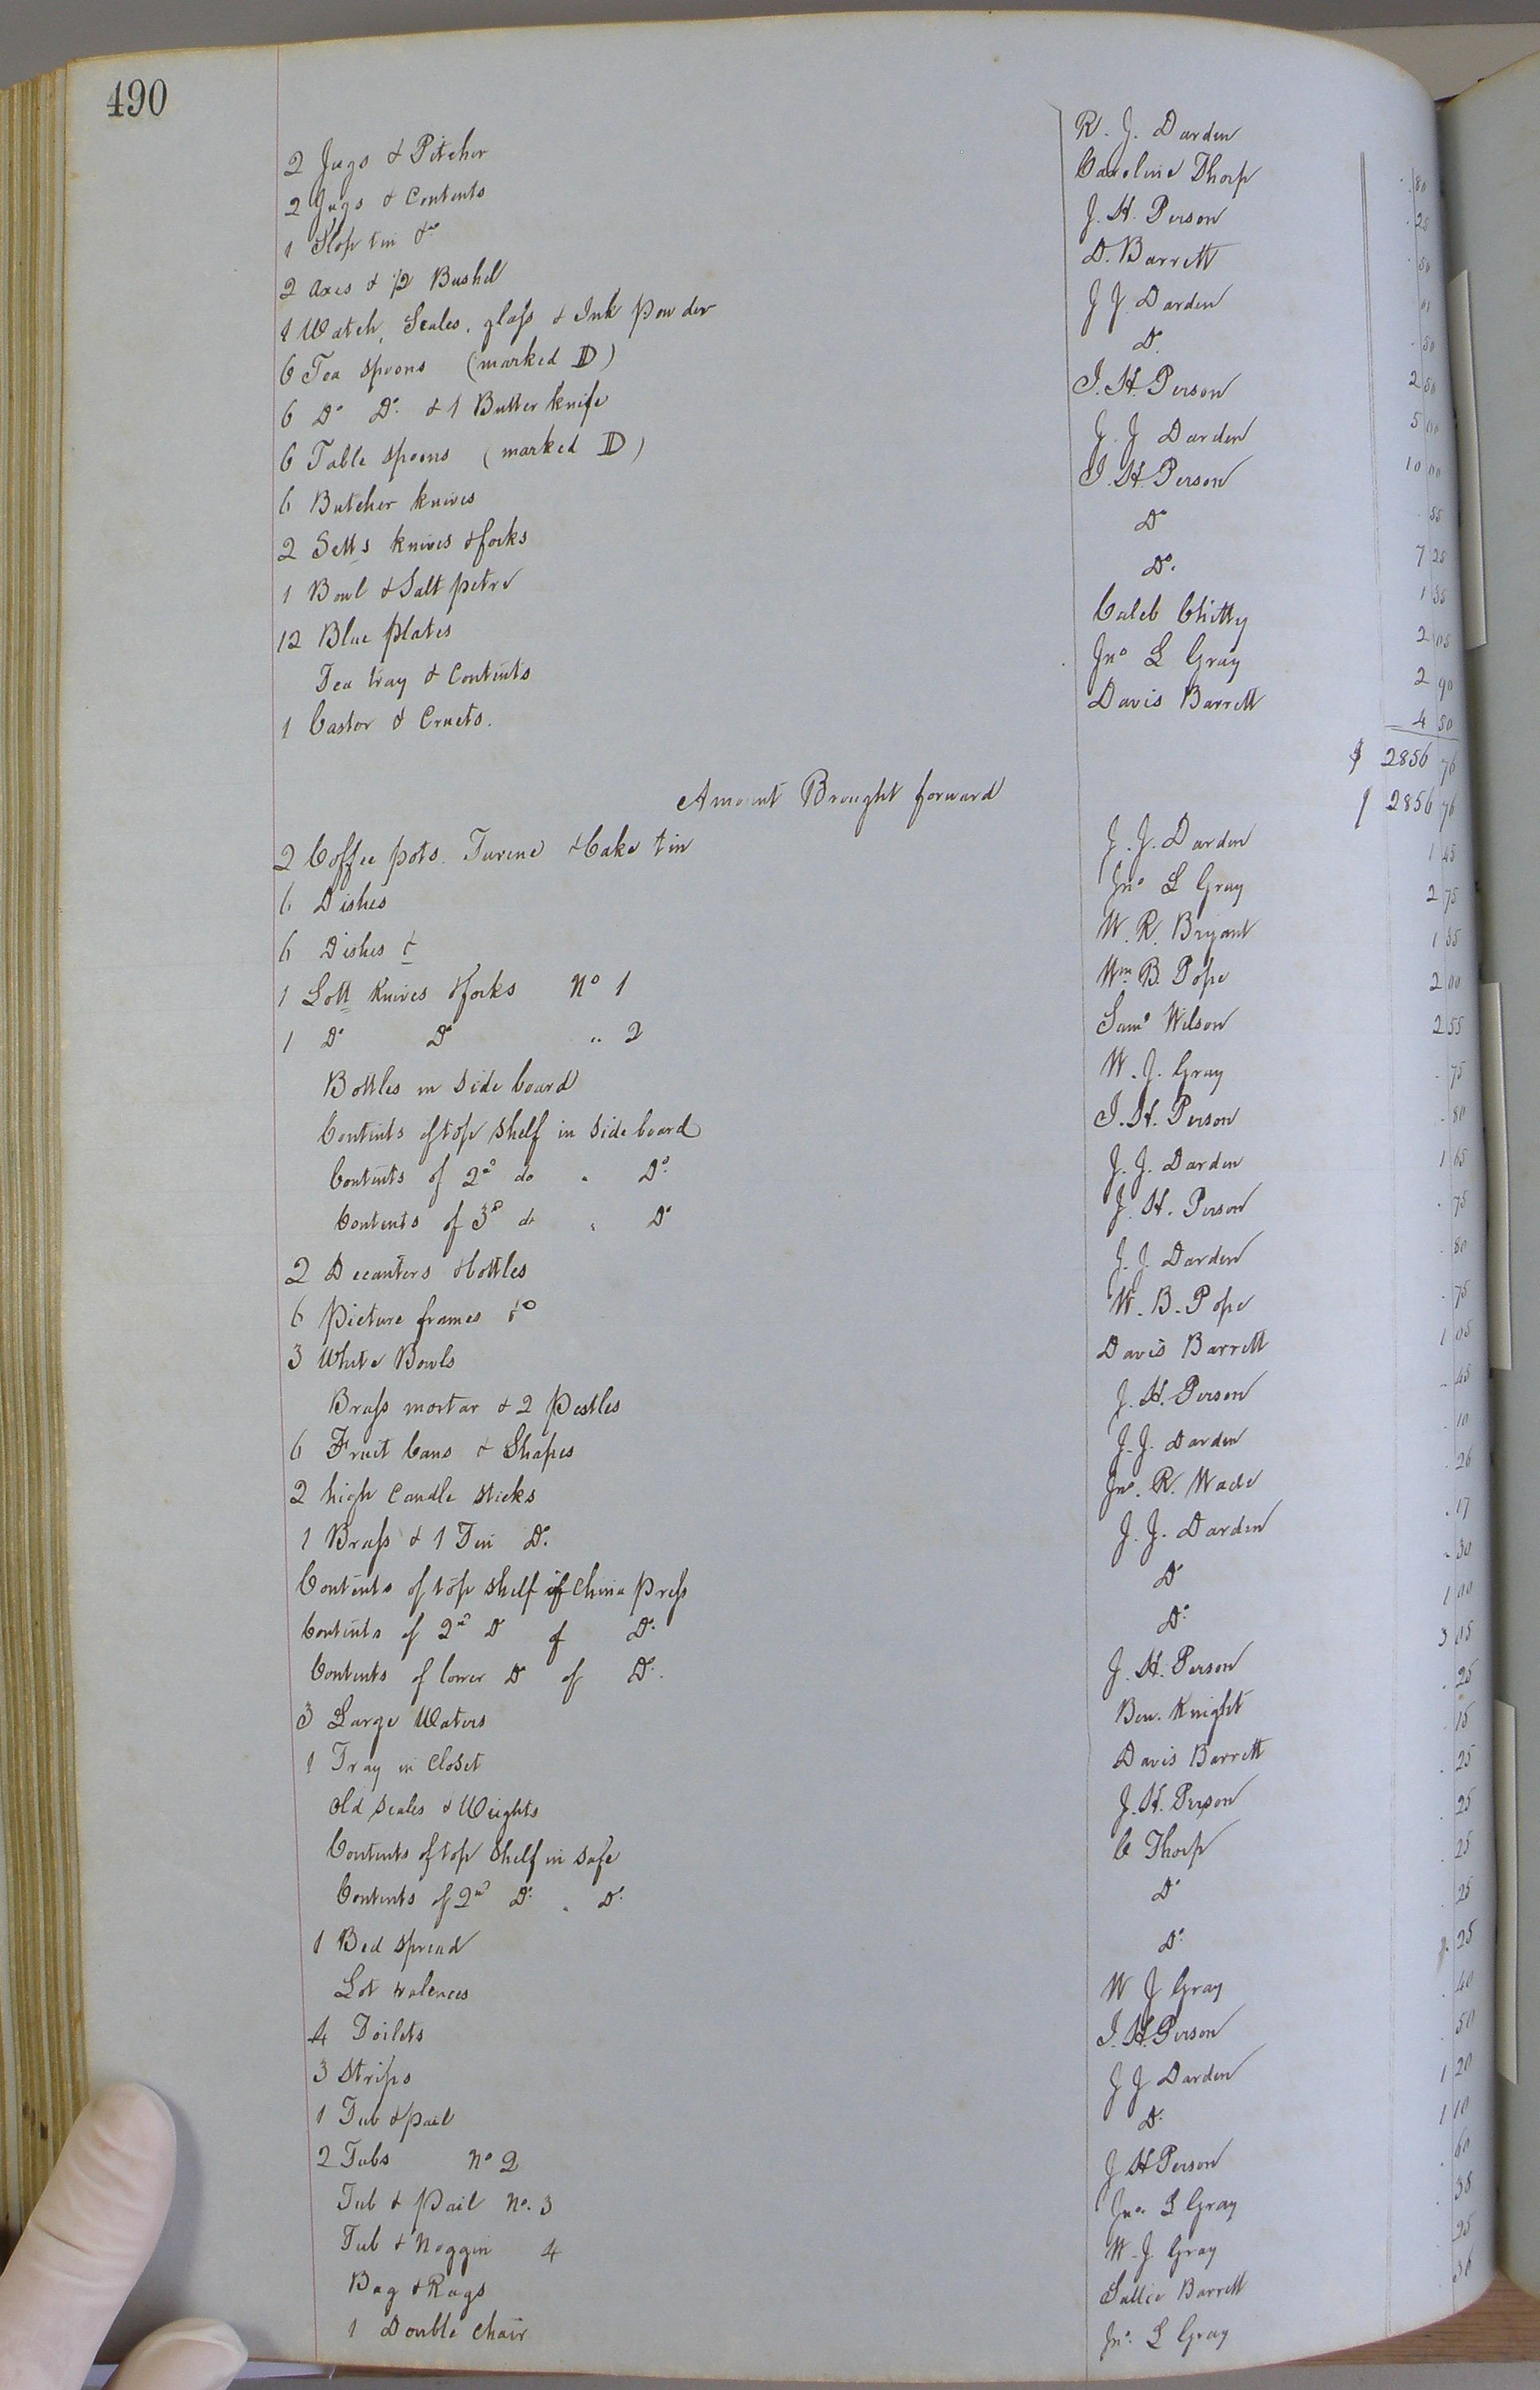 490
2 Jugs & Pitcher R. J. Darden . 80
2 Jugs & Contents Caroline Thorp . 25
1 Slop tin &c J. H. Person . 50
2 Axes & 1/2 Bushel D. Barrett 01
1 Watch, Scales, glass & Ink Powder J J Darden . 50
6 Tea Spoons (marked D) Do. 2 50
6 Do Do. & 1 Butter knife J. H. Person 5 00
6 Table Spoons (marked D) J. J Darden 10 00
6 Butcher knives J. H. Person . 55
2 Setts knives & forks Do 7 25
1 Bowl & Salt petre Do. 1 35
12 Blue plates Caleb Chitty 2 05
Tea tray & Contents Jno L Gray 2 90
1 Castor & Cruets. Davis Barrett 4 50
$ 2856 76
Amount Brought forward $ 2856 76
2 Coffee pots. Turene & Cake tin J. J. Darden 1 45
6 Dishes Jno L Gray 2 75
6 Dishes & W. R. Bryant 1 35
1 Lott knives & forks No 1 Wm. B. Pope 2 00
1 Do Do " 2 Saml Wilson 2 55
Bottles in Side board W. J. Gray . 75
Contents of top Shelf in Side board J. H. Person . 80
Contents of 2d do " Do. J. J. Darden 1 65
Contents of 3d do " Do J. H. Person . 75
2 Decanters & bottles J. J. Darden . 80
6 Picture frames &c W. B. Pope . 75
3 White Bowls Davis Barrett 1 05
Brass mortar & 2 Pestles J. H. Person . 45
6 Fruit Cans & Shapes J. J. Darden . 10
2 high Candle Sticks Jno. R. Wade . 26
1 Brass & 1 Tin Do. J. J. Darden . 17
Contents of top Shelf of China Press Do . 30
Contents of 2d Do of Do. Do. 1 00
Contents of lower Do of Do. J. H. Person 3 05
3 Large Waters Ben. Knight . 25
1 Tray in Closet Davis Barrett . 15
Old Scales & Weights J. H. Person . 25
Contents of top Shelf in Safe C Thorp . 25
Contents of 2nd Do. " Do. Do . 25
1 Bed Spread Do. . 25
Lot valences W J Gray . 25
4 Toilets J. H. Person . 40
3 Strips J J Darden . 50
1 Tub & pail Do. 1 20
2 Tubs No 2 J H Person 1 10
Tub & Pail No. 3 Jno. L Gray . 60
Tub & Noggin 4 W. J Gray . 35
Bag & Rags Sallie Barrett . 25
1 Double Chair Jno. L Gray . 36